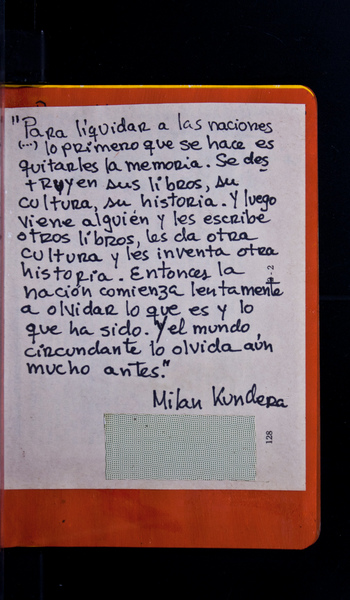 "Para liquidar a las naciones
(...) lo primero que se hace es
quitarles la memoria. Se des
truyen sus libros, su
cultura, su historia. Y luego
viene alguién y les escribe
otros libros, les da otra
cultura y les inventa otra
historia. Entonces la
nación comienza lentamente
a olvidar lo que es y lo
que ha sido. Y el mundo
circundante lo olvida aún
mucho antes."
Milan Kundera
128